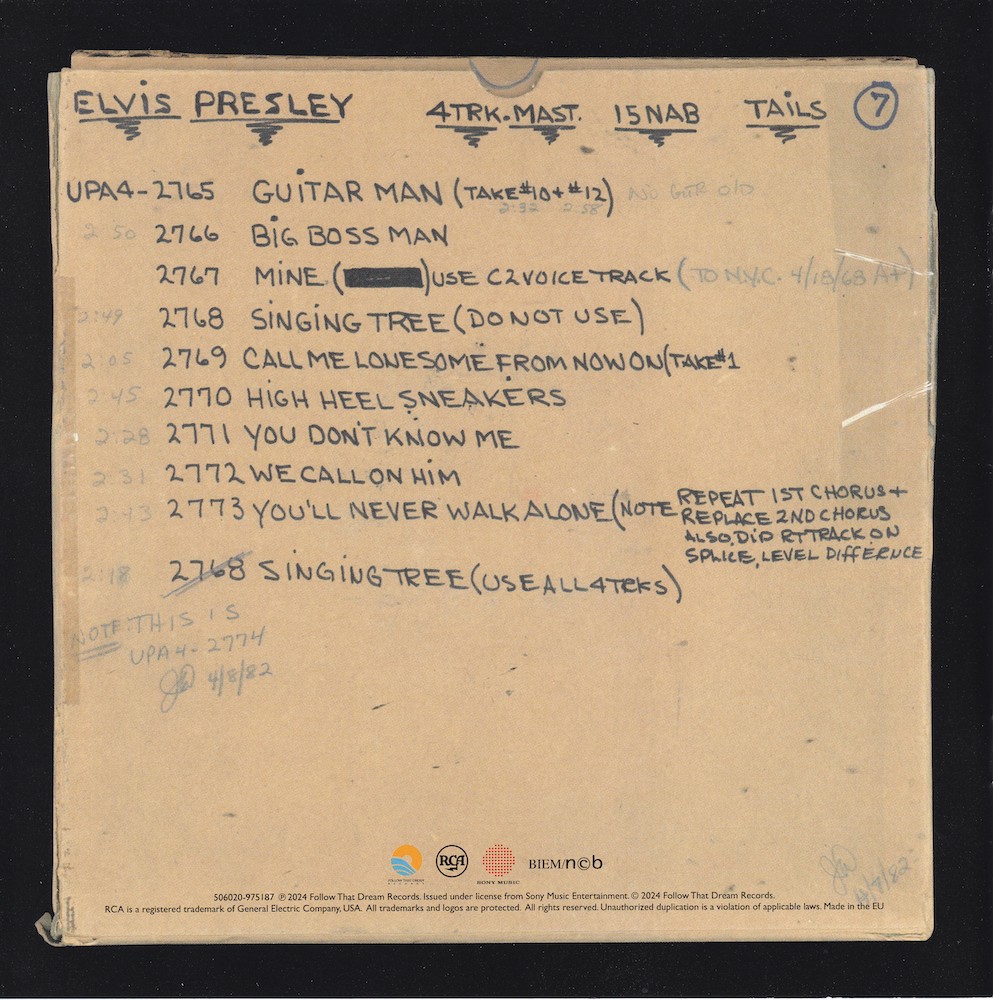 ELVIS PRESLEY 4TRK.MAST. 15NAB TAILS 7
UPA4-2765 GUITAR MAN (TAKE #10 + #12) NO GTR OLD
2:32 2:58
2:50 2766 BIG BOSS MAN
2767 MINE ( ) USE C2 VOICE TRACK (TO N.Y.C. 4/18/68 A+)
2:49 2768 SINGING TREE (DO NOT USE)
2:05 2769 CALL ME LONESOME FROM NOW ON (TAKE #1
2:45 2770 HIGH HEEL SNEAKERS
2:28 2771 YOU DON'T KNOW ME
2:31 2772 WE CALL ON HIM
2:43 2773 YOU'LL NEVER WALK ALONE (NOTE REPEAT 1ST CHORUS +
REPLACE 2ND CHORUS
ALSO, DID RT TRACK ON
SPLICE, LEVEL DIFFERNCE
2:18 2768 SINGING TREE (USE ALL 4 TRKS)
NOTE: THIS IS
UPA4-2774
4/8/82
4/8/82
FOLLOW THAT DREAM
RECORDS
RCA
SONY MUSIC
BIEM/n©b
506020-975187 ℗ 2024 Follow That Dream Records. Issued under license from Sony Music Entertainment. © 2024 Follow That Dream Records.
RCA is a registered trademark of General Electric Company, USA. All trademarks and logos are protected. All rights reserved. Unauthorized duplication is a violation of applicable laws. Made in the EU